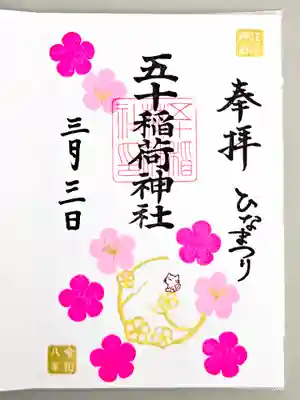 奉拝
ひなまつり
五十稲荷神社
三月三日